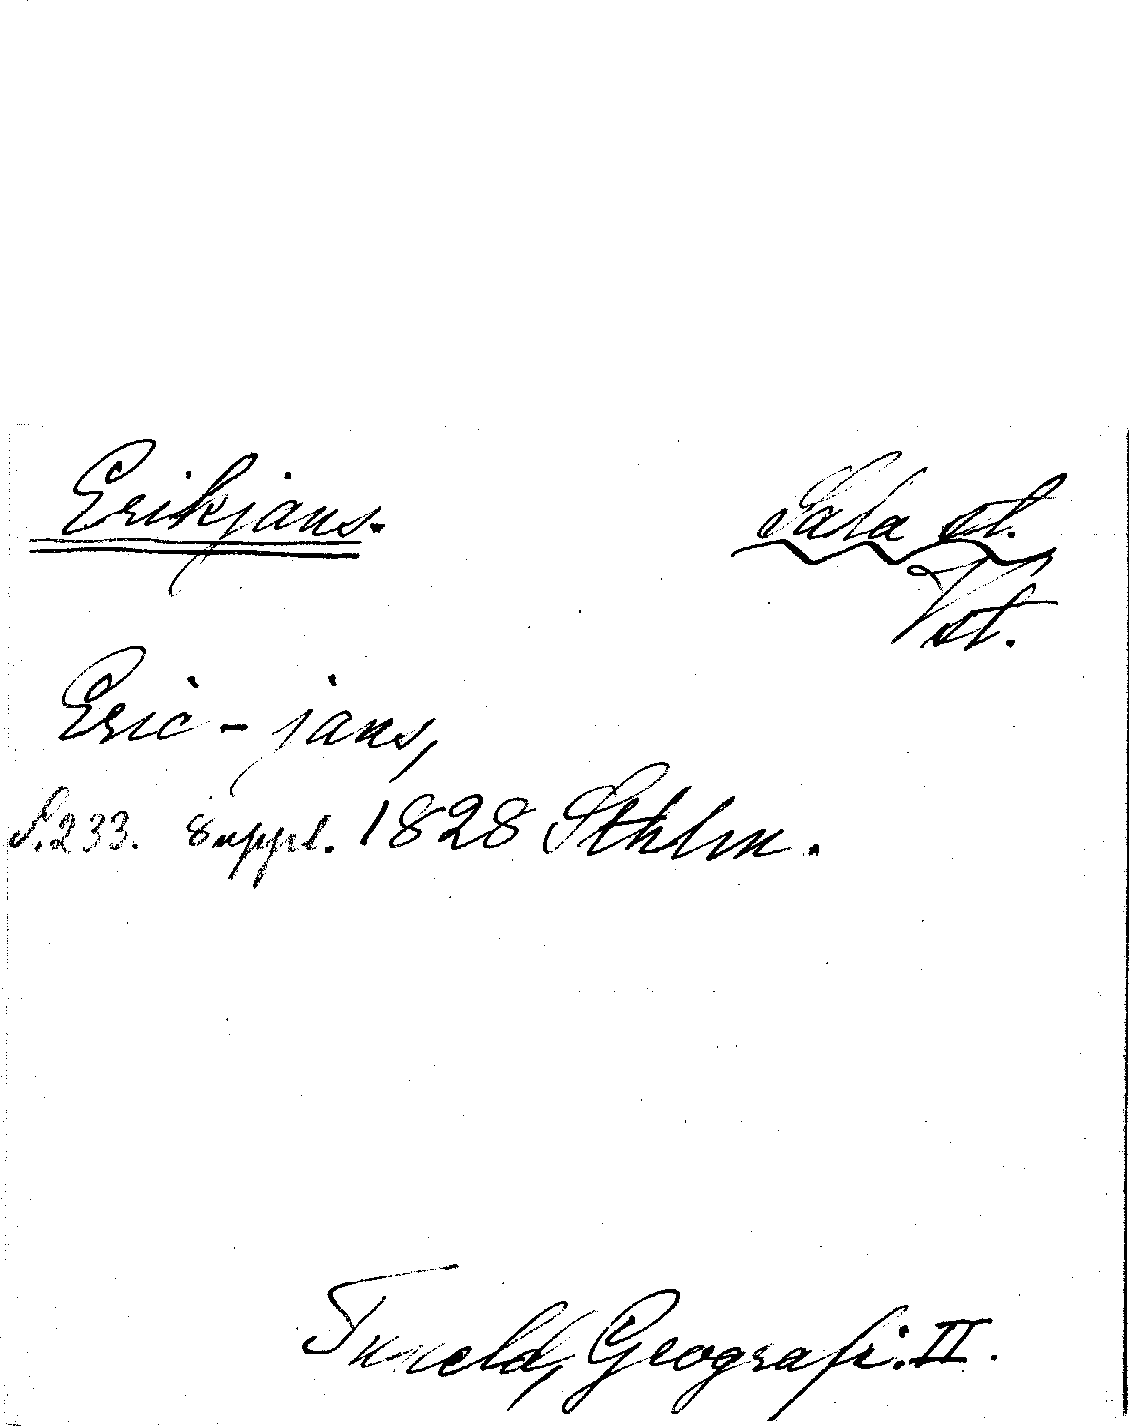 Erikjans. Sala st.
Vst.
Eric-jans,
S. 233. Suppl. 1828 Sthlm.
Tuneld, Geografi. II.